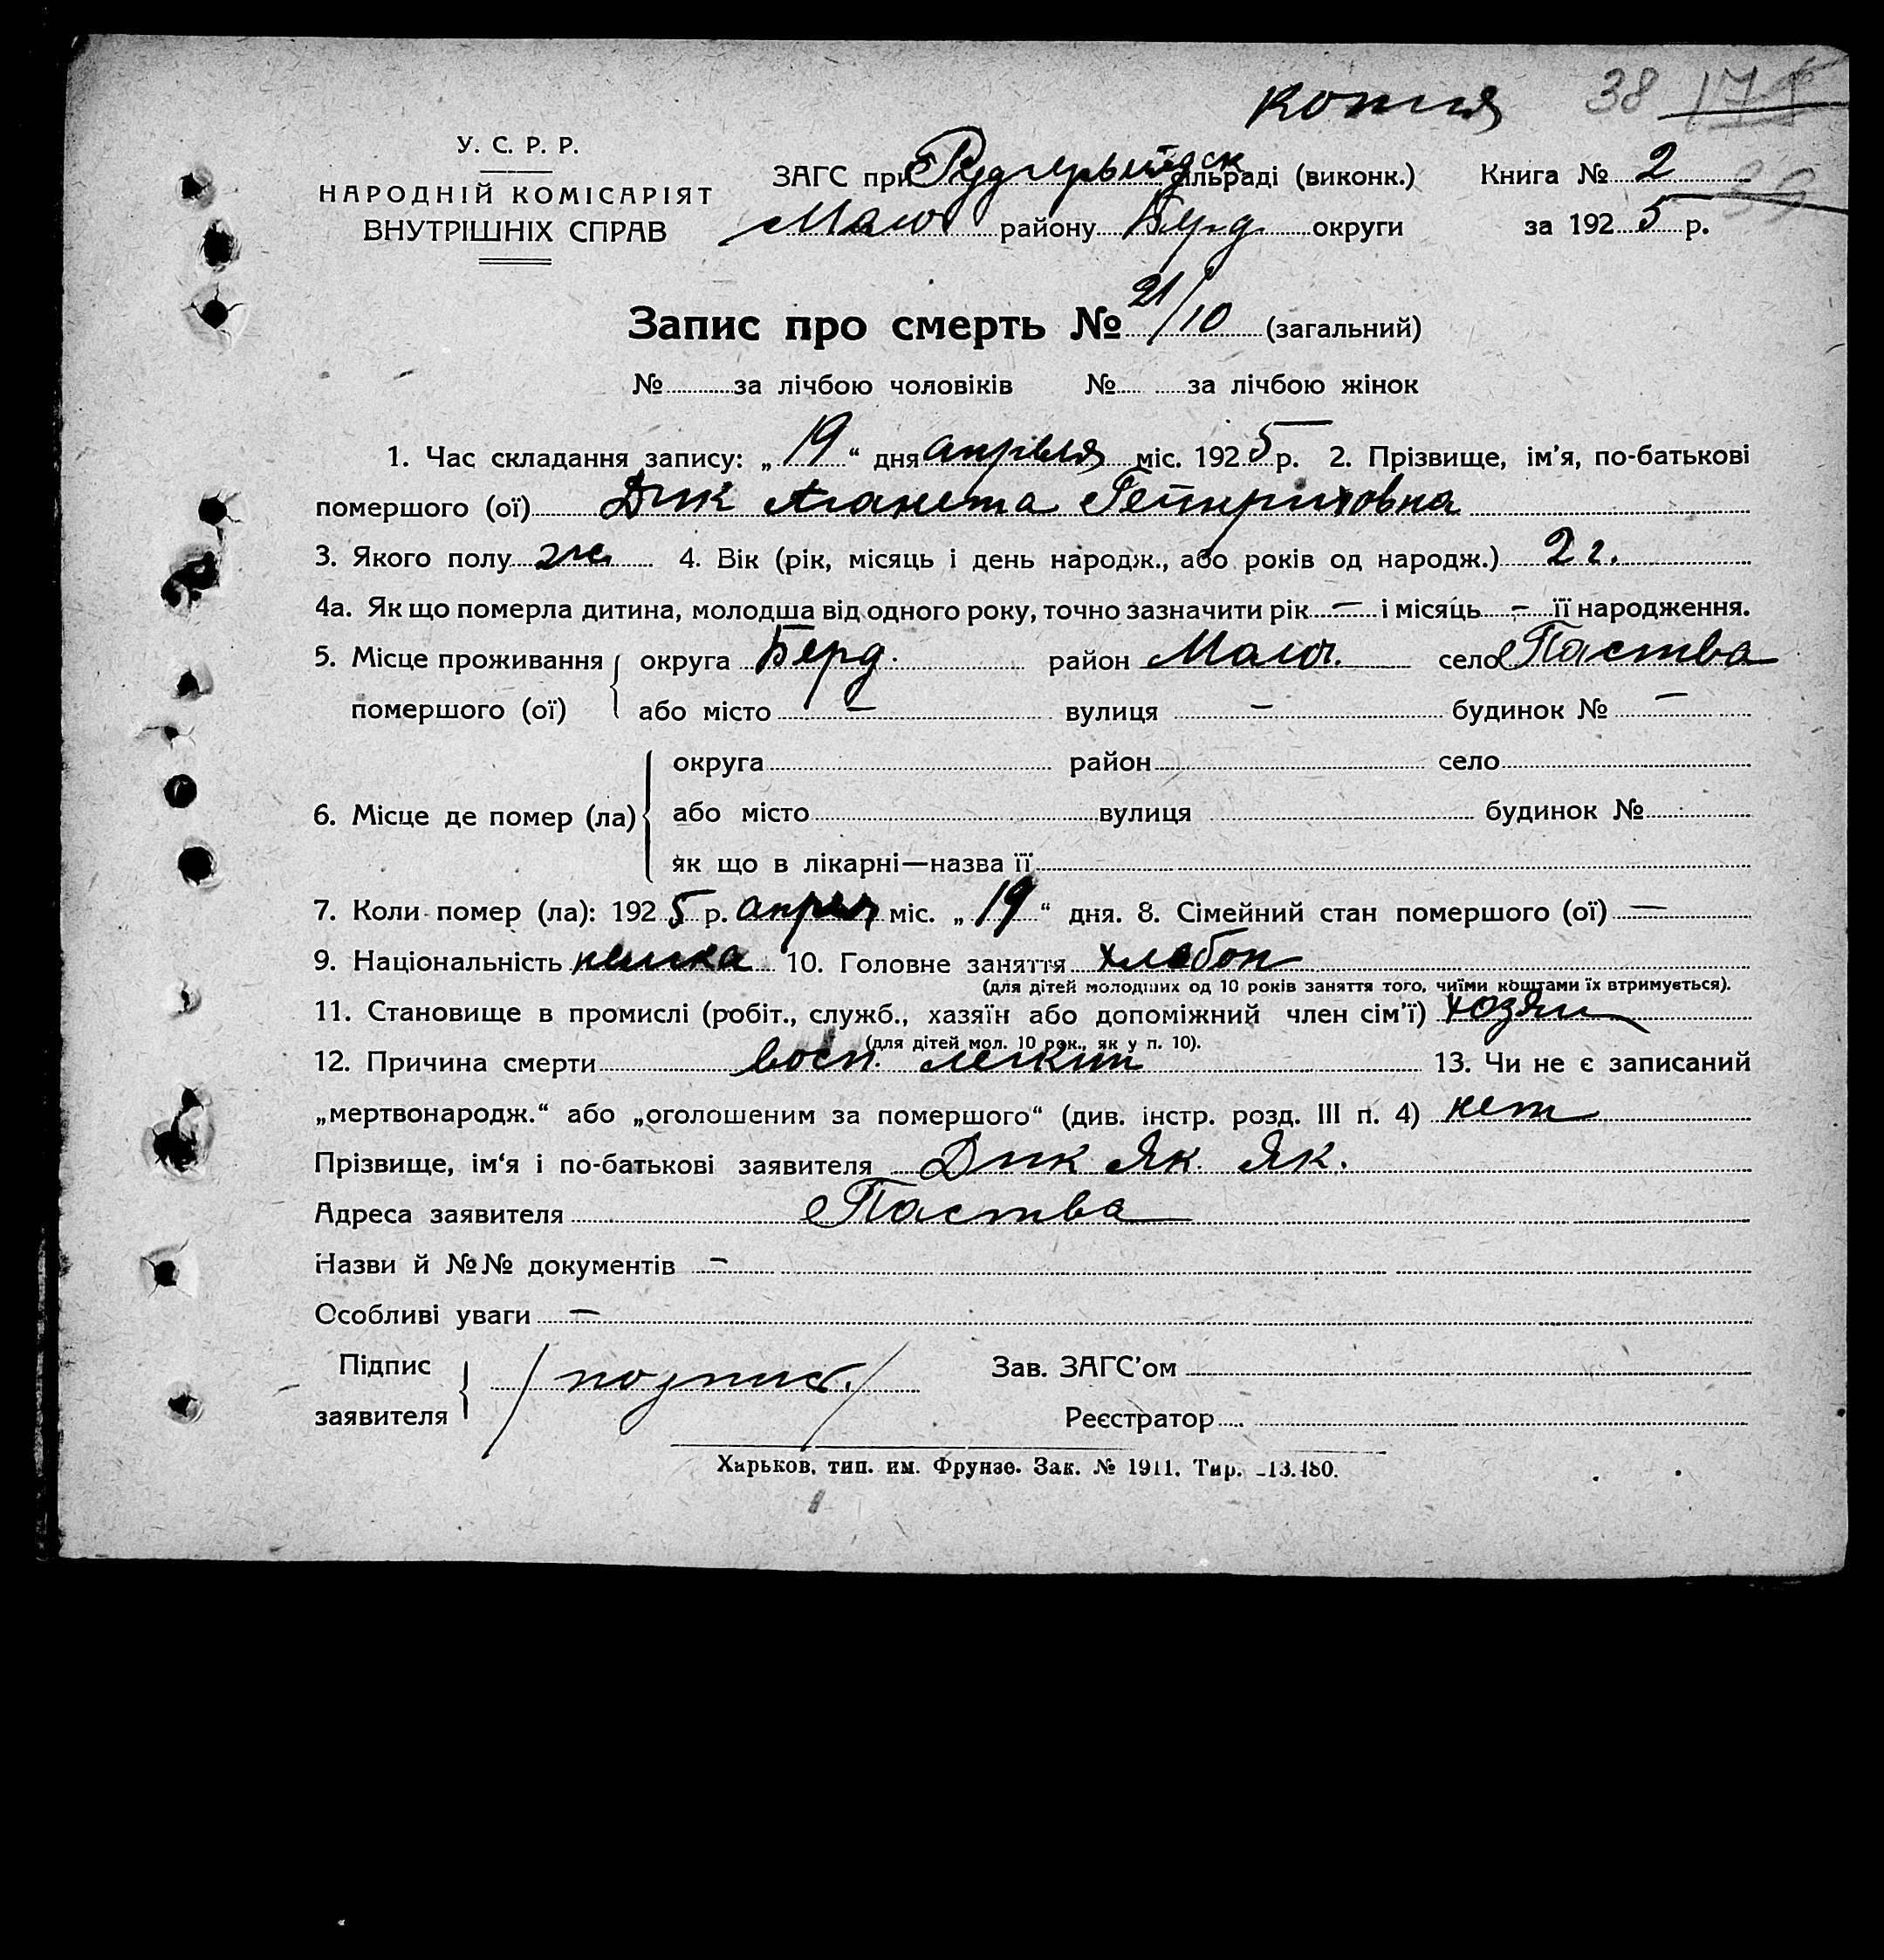 копия 38 174
У. С. Р. Р.
НАРОДНІЙ КОМІСАРІЯТ
ВНУТРІШНІХ СПРАВ
ЗАГС при сільраді (виконк.) Книга № 2
39
Молоч району Берд. округи за 1925 р.
Запис про смерть № 21/10 (загальний)
№ за лічбою чоловіків № за лічбою жінок
1. Час складання запису: „19“ дня апреля міс. 1925 р. 2. Прізвище, ім’я, по-батькові
помершого (ої) Дик Аганета Гейнриховна
3. Якого полу ж. 4. Вік (рік, місяць і день народж., або років од народж.) 2 г.
4а. Як що померла дитина, молодша від одного року, точно зазначити рік — і місяць — її народження.
5. Місце проживання помершого (ої) округа Берд. район Молоч. село Паства
або місто — вулиця — будинок № —
6. Місце де помер (ла) округа район село
або місто вулиця будинок №
як що в лікарні—назва її
7. Коли помер (ла): 1925 р. апреля міс. „19“ дня. 8. Сімейний стан помершого (ої) —
9. Національність немка 10. Головне заняття хлебоп
(для дітей молодших од 10 років заняття того, чиїми коштами їх втримується).
11. Становище в промислі (робіт., служб., хазяїн або допоміжний член сім’ї) хозяин
(для дітей мол. 10 рок., як у п. 10).
12. Причина смерти восп. легких 13. Чи не є записаний
„мертвонародж.“ або „оголошеним за помершого“ (див. інстр. розд. III п. 4) нет
Прізвище, ім‘я і по-батькові заявителя Дик Як. Як.
Адреса заявителя Паства
Назви й №№ документів —
Особливі уваги —
Підпис заявителя / подпис. / Зав. ЗАГС’ом
Реєстратор
Харьков, тип. им. Фрунзе. Зак. № 1911. Тир. 13.480.